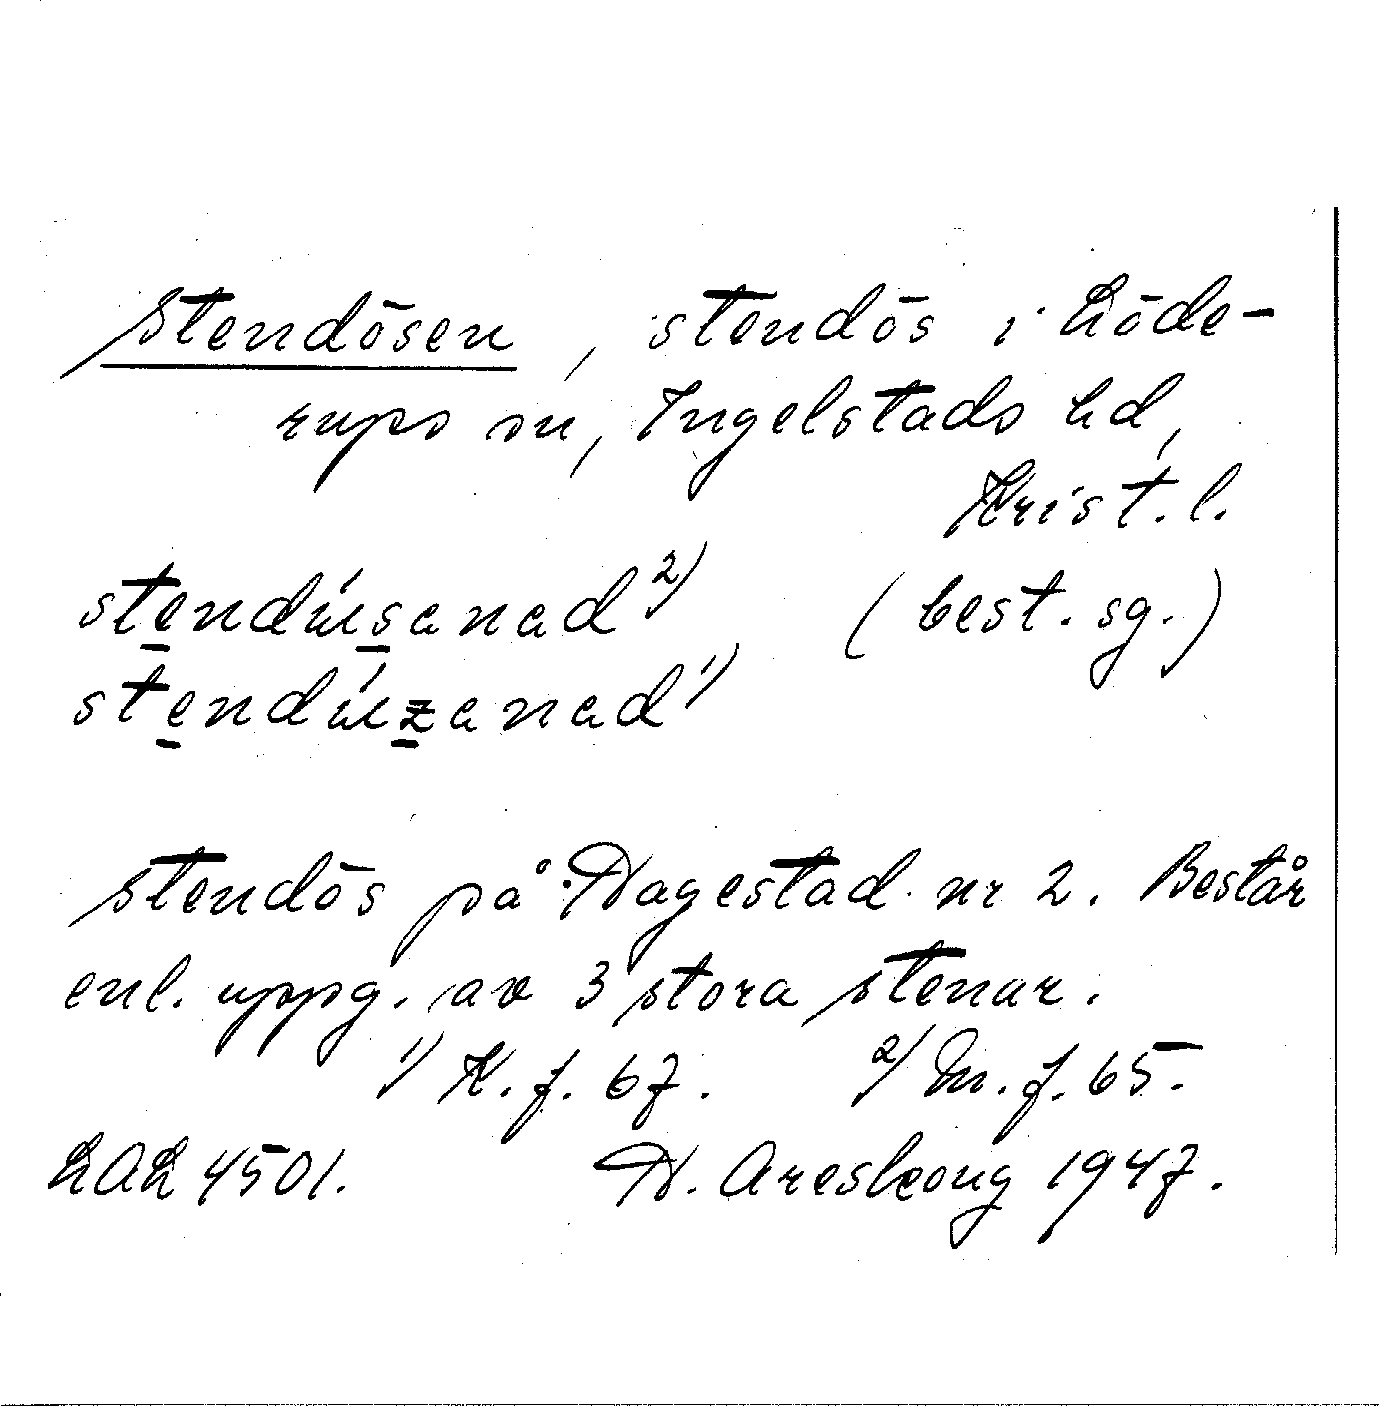 Stendösen, stendös i Löde-
rups sn, Ingelstads hd,
Krist. l.
(best. sg.)
Stendös på Hagestad nr 2. Består
enl. uppg. av 3 stora stenar.
1) K. f. 67. 2) M. f. 65.
LAL 4501. H. Areskoug 1947.